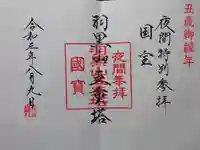 丑歳御縁年
夜間特別参拝
国宝
羽黒山五重塔
夜間奉拝
國寶
令和三年八月九日